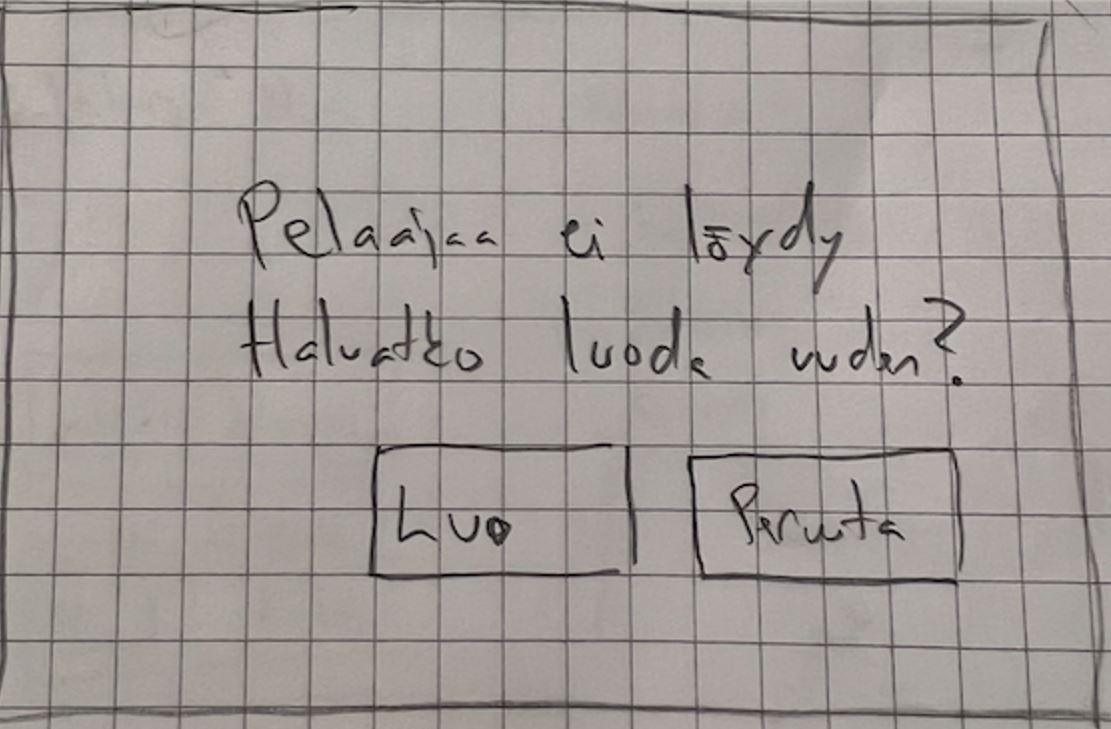 Pelaajaa ei löydy
Haluatko luoda uuden?
Luo
Peruuta